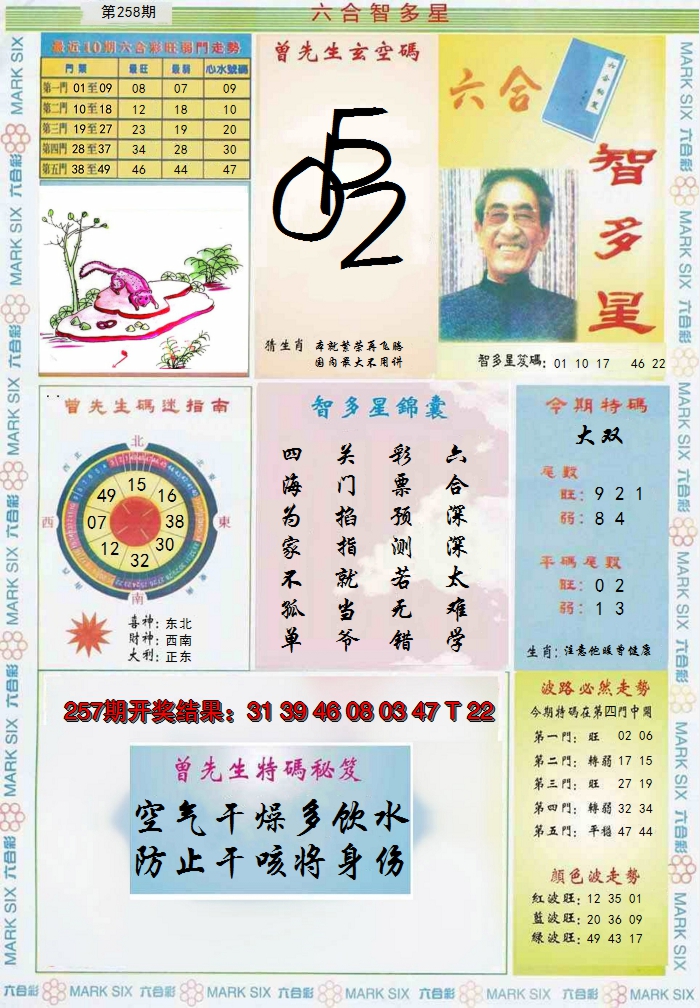 第258期
六合智多星
最近10期六合彩旺弱門走勢
門類 最旺 最弱 心水號碼
第一門 01至09 08 07 09
第二門 10至18 12 18 10
第三門 19至27 23 19 20
第四門 28至37 34 28 30
第五門 38至49 46 44 47
曾先生玄空碼
052
猜生肖 本就繁荣再飞腾
国内最大不用讲
六合
智多星
智多星笈碼: 01 10 17 46 22
曾先生碼迷指南
北
西北
東北
西
東
西南
東南
南
15
16
38
30
32
12
07
49
喜神: 东北
財神: 西南
大利: 正东
智多星錦囊
六合深深太难学
彩票预测若无错
关门掐指就当爷
四海为家不孤单
今期特碼
大双
尾數
旺: 9 2 1
弱: 8 4
平碼尾數
旺: 0 2
弱: 1 3
生肖: 注意他暖曾健康
257期开奖结果: 31 39 46 08 03 47 T 22
曾先生特碼秘笈
空气干燥多饮水
防止干咳将身伤
波路必然走勢
今期特碼在第四門中開
第一門: 旺 02 06
第二門: 轉弱 17 15
第三門: 旺 27 19
第四門: 轉弱 32 34
第五門: 平穩 47 44
顏色波走勢
紅波旺: 12 35 01
藍波旺: 20 36 09
綠波旺: 49 43 17
六合彩 MARK SIX 六合彩 MARK SIX 六合彩 MARK SIX 六合彩 MARK SIX 六合彩 MARK SIX